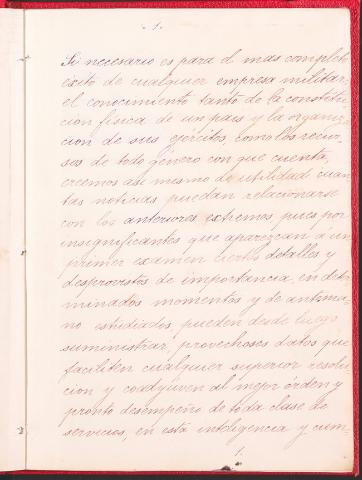 - 1 -
Si necesario es para el mas completo
éxito de cualquier empresa militar,
el conocimiento tanto de la constitu-
cion física de un pais y la organiza-
cion de sus ejércitos, como los recur-
sos de todo género con que cuenta,
creemos asi mismo de utilidad cuan-
tas noticias puedan relacionarse
con los anteriores extremos, pues por
insignificantes que aparezcan á un
primer examen ciertos detalles y
desprovistos de importancia, en deter-
minados momentos y de antema-
no estudiados, pueden desde luego
suministrar provechosos datos que
faciliten cualquier superior resolu-
cion y coadyuven al mejor órden y
pronto desempeño de toda clase de
servicios, en esta inteligencia y cum-
1.